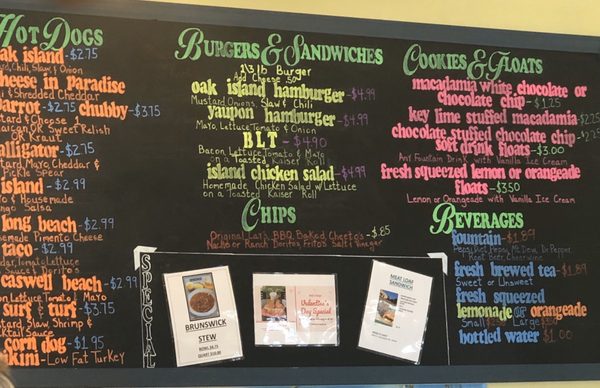 Hot Dogs
oak island - $2.75
Chili, Slaw & Onion
cheese in paradise
& Shredded Cheddar
parrot - $2.75 chubby - $3.75
& Cheese 1
Bacon OR Sweet Relish
OR Kraut
alligator - $2.75
Mustard, Mayo, Cheddar &
Pickle Spear
island - $2.99
& Homemade
Mango Salsa
long beach - $2.99
Homemade Pimento Cheese
taco - $2.99
Cheddar, Tomato, Lettuce
Sauce & Doritos
caswell beach - $2.99
Bacon, Lettuce, Tomato, Mayo
surf & turf - $3.75
Mustard, Slaw, Shrimp &
Cocktail Sauce
corn dog - $1.95
bikini - Low Fat Turkey
Burgers & Sandwiches
1/3 lb Burger
Add Cheese 50
oak island hamburger - $4.99
Mustard, Onions, Slaw & Chili
yaupon hamburger - $4.99
Mayo, Lettuce, Tomato & Onion
BLT - $4.90
Bacon, Lettuce, Tomato & Mayo
on a Toasted Kaiser Roll
island chicken salad - $4.99
Homemade Chicken Salad w/ Lettuce
on a Toasted Kaiser Roll
Chips
Original Lay's, BBQ, Baked, Cheeto's - $.85
Nacho or Ranch Doritos, Frito's, Salt & Vinegar
Special
BRUNSWICK
STEW
Valentine's
Day Special
MEAT LOAF
SANDWICH
Cookies & Floats
macadamia white chocolate or
chocolate chip - $1.25
key lime stuffed macadamia - $2.25
chocolate stuffed chocolate chip - $2.25
soft drink floats - $3.00
Any Fountain Drink with Vanilla Ice Cream
fresh squeezed lemon or orangeade
floats - $3.50
Lemon or Orangeade with Vanilla Ice Cream
Beverages
fountain - $1.89
Pepsi, Diet Pepsi, Mt. Dew, Dr. Pepper,
Root Beer, Cheerwine
fresh brewed tea - $1.89
Sweet or Unsweet
fresh squeezed
lemonade or orangeade
Small Large
bottled water - $1.00